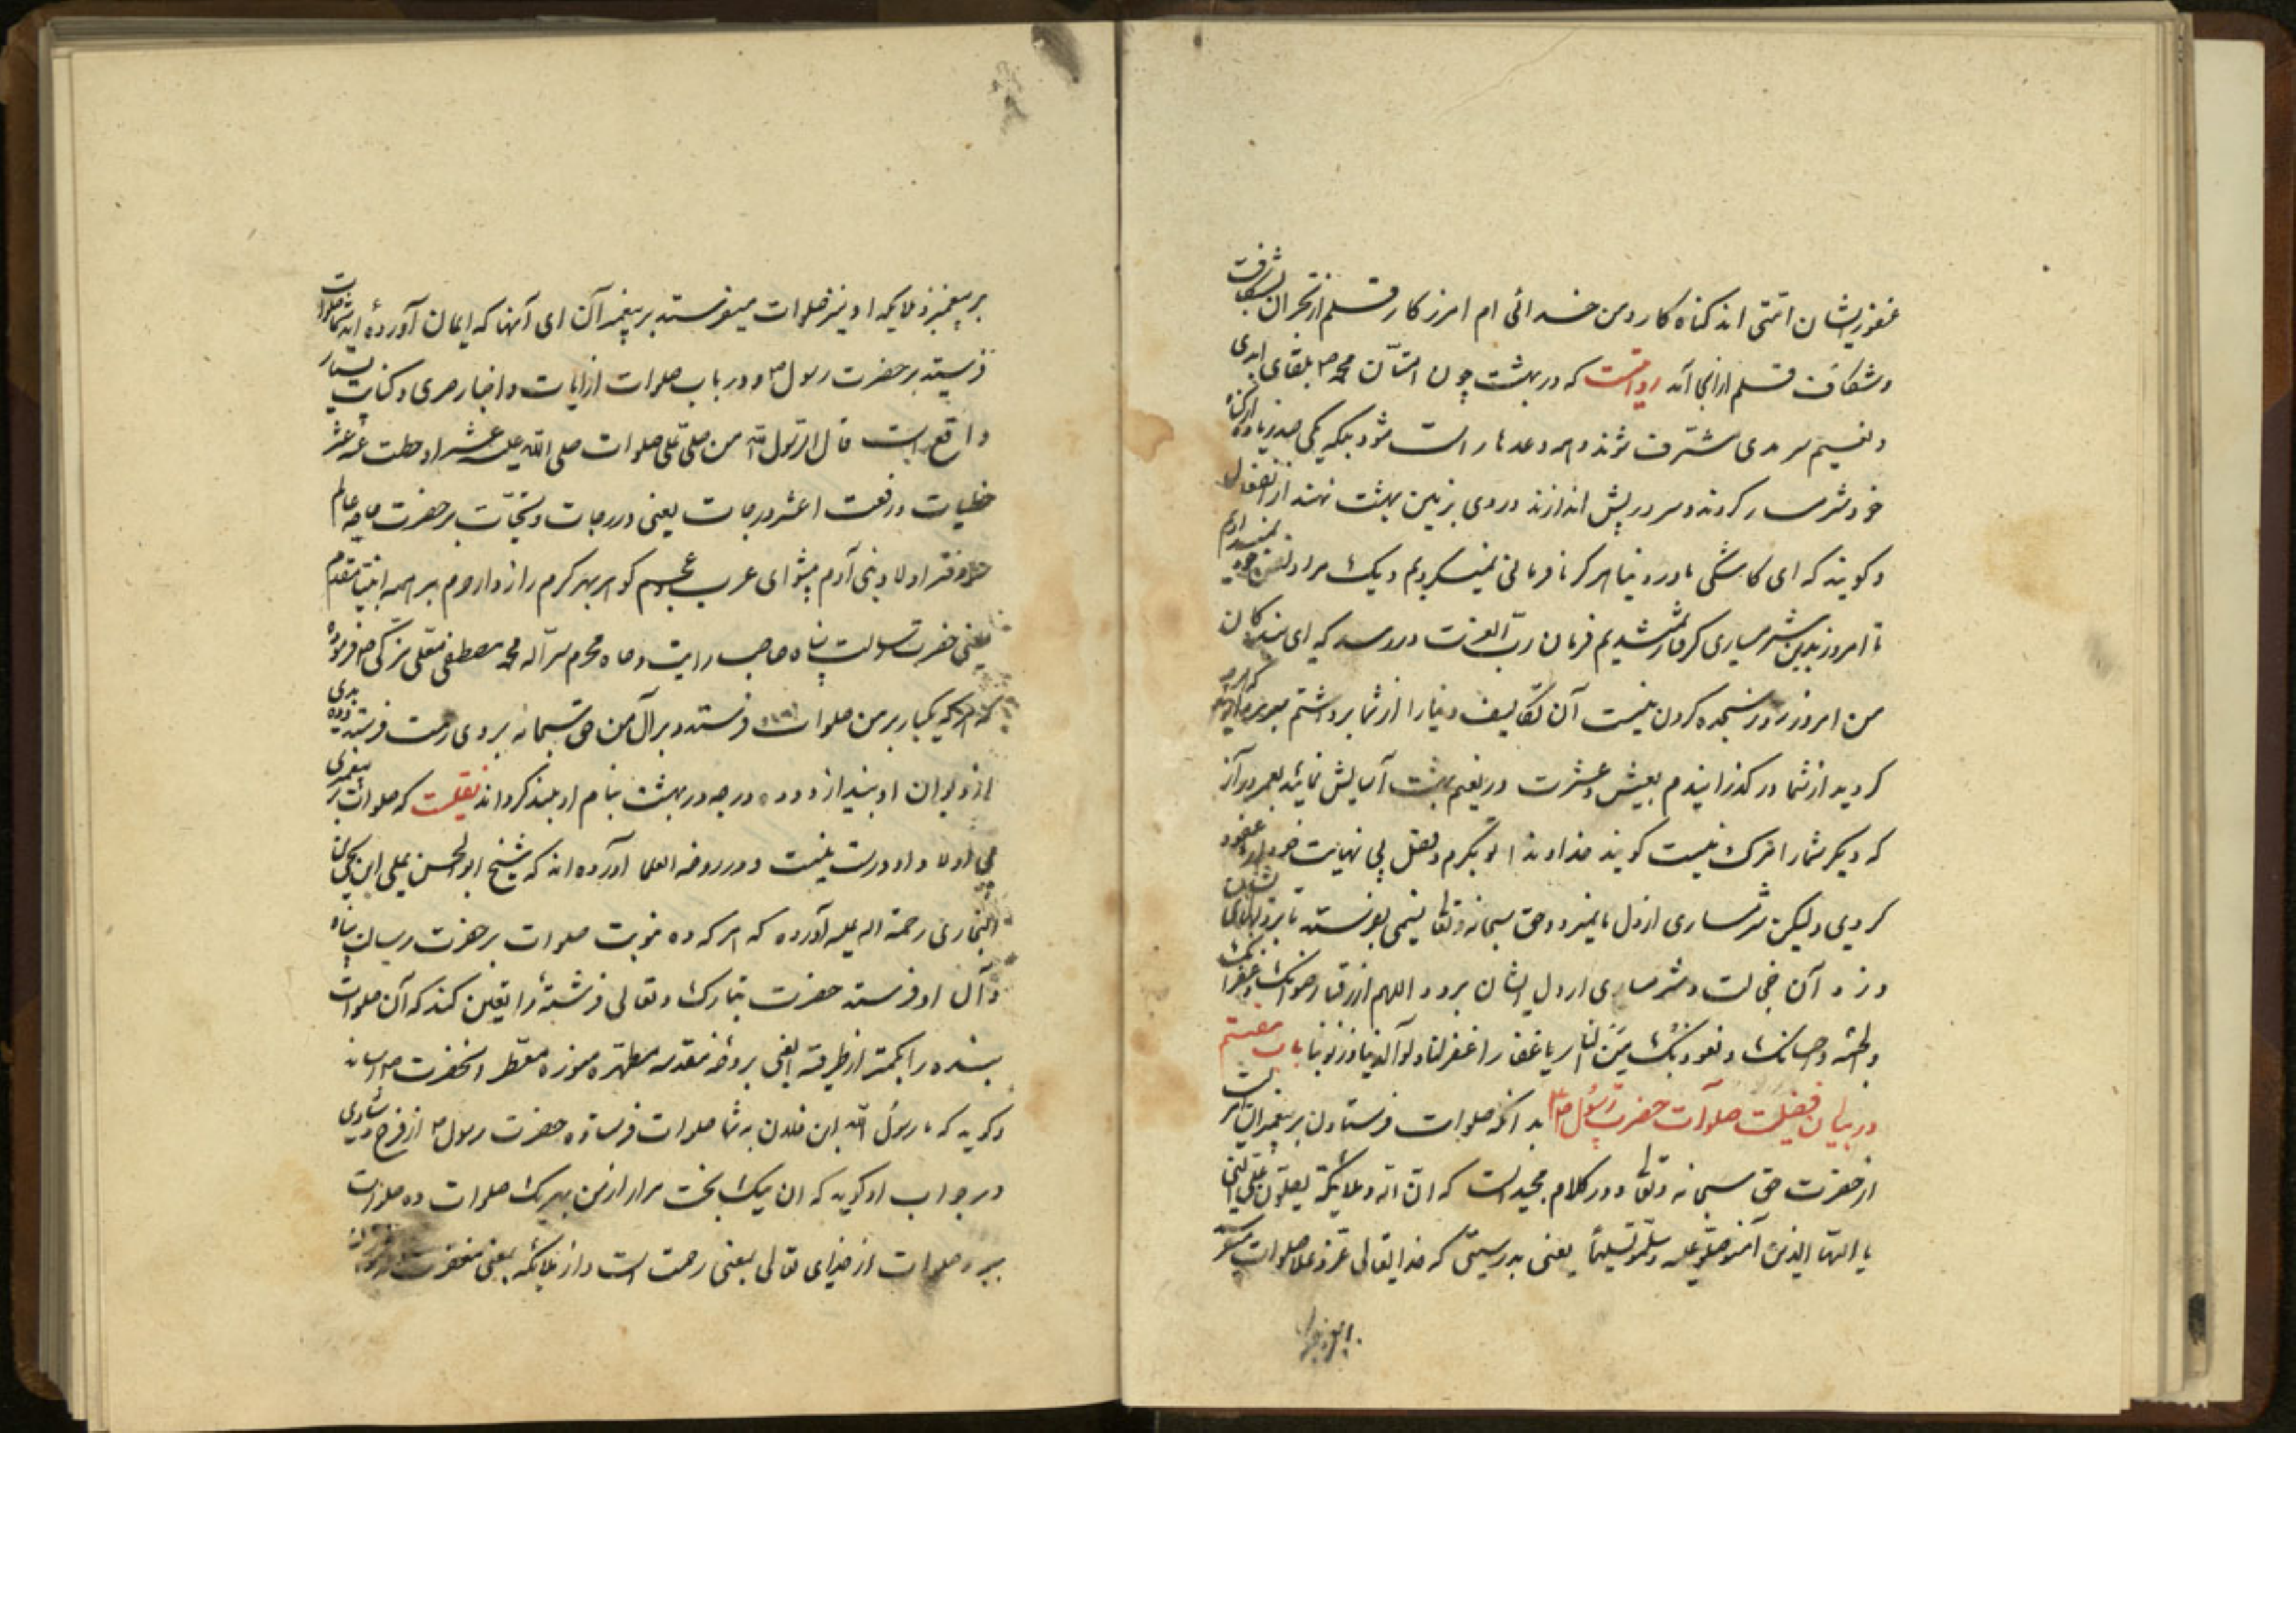 غفور ایشان امتی اند کناه کار و من خدائی ام امرز کار قلم از نحران بشکافت
و شکاف قلم از انجا آمد روایتست که در بهشت چون امتآن محمد ص بلقای ابدی
و نعیم سرمدی مشرف شوند و همه وعدها راست شود بیکدیکر از کناه
خود شرمسار کردند و سر در پیش اندازند و روی بزمین بهشت نهند از انفعال
و کویند که ای کاشکی ما در دنیا هرکز نافرمانی نمیکردیم و یک مراد نفس خود نمیدادیم
تا امروز بدین شرمساری کرفتار نمیشدیم فرمان رب العزت در رسد که ای بندکان
من امروز روز سجده کردن نیست آن تکالیف دنیا را از شما برداشتم هرچه
کردید از شما در کذرانیدم بعیش و عشرت در نعیم بهشت آسایش نمائید بعمر دراز
که دیکر شما را مرک نیست کویند خداوندا تو بکرم و فضل بی نهایت خود عفو
کردی ولیکن شرمساری از دل ما نمیرود حق سبحانه و تعالی نسیمی بفرستد تا بر دلهای ایشان
وزد و آن خجالت و شرمساری از دل ایشان برود اللهم ارزقنا رضوانک و غفرانک
والجنة و احسانک و نعوذ بک من النار یا غفار اغفر لنا ولوالدینا و ذنوبنا باب هفتم
در بیان فضیلت صلوآت حضرت رسول ص بدانکه صلوات فرستادن بر پیغمبران امر است
از حضرت حق سبحانه و تعالی و در کلام مجید است که ان الله وملائکة یصلون علی النبی
یا ایها الذین آمنو صلو علیه وسلمو تسلیما یعنی بدرستی که خدایتعالی عز و علا صلوات میفرستد
بر پیغمبر
بر پیغمبر و ملایکه او نیز صلوات میفرستد بر پیغمبر آن ای آنها که ایمان آورده اید شما صلوات
فرستید بر حضرت رسول ص و در باب صلوات از آیات و اخبار صری و کنایت بسیار
واقع است قال الرسول الله من صلی علی صلوات صلی الله علیه عشرا و حطت عنه عشر
خطیات و رفعت اعشر درجات یعنی در درجات و نتیجات بر حضرت خاجه عالم
و مفخر اولاد بنی آدم پیشوای عرب و عجم کوهر بهر کرم رازدار حرم بر همه انبیا مقدم
یعنی حضرت رسالت پناه صاحب رایت و ماه محرم سر آله محمد مصطفی معلی مزکی ص فرموده
که هر که یکبار بر من صلوات فرستد و بر آل من حق سبحانه بر وی رحمت فرستد و ده بدی
از دیوان او بیندازد و ده درجه در بهشت بنام او بلند کرداند نقلست که صلوات بر پیغمبری
بی اولاد او درست نیست و در روضه العلما آورده اند که شیخ ابو الحسن علی ابن یحیی
البخاری رحمة اله علیه آورده که هر که ده نوبت صلوات بر حضرت رسالت پناه
و آل او فرستد حضرت تبارک و تعالی فرشتهٔ را تعین کند که آن صلوات
بنده را بکمتر از طرفة العین بروضه مقدسه مطهره منوره معطر انحضرت ص رساند
و کوید که یا رسول الله این فلان به شما صلوات فرستاده حضرت رسول ص از فرح و شادی
در جواب او کوید که ان نیک بخت مرا از من بهر یک صلوات ده صلوات
ببر و صلوات از خدای تعالی بمعنی رحمت است و از ملائکه بمعنی مغفرت